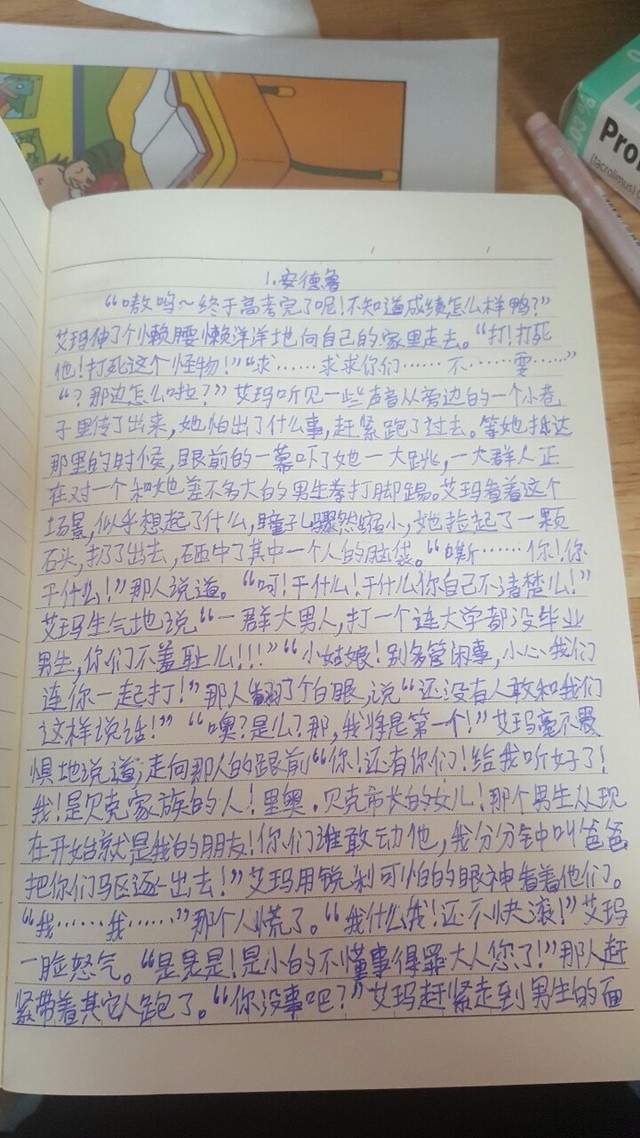 1.安德鲁
“嗷呜～终于高考完了呢！不知道成绩怎么样鸭？”
艾玛伸了个懒腰懒洋洋地向自己的家里走去。“打！打死
他！打死这个怪物！”“求……求求你们……不……要……”
“？那边怎么啦？”艾玛听见一些声音从旁边的一个小巷
子里传了出来，她怕出了什么事，赶紧跑了过去。等她抵达
那里的时候，眼前的一幕吓了她一大跳，一大群人正
在对一个和她差不多大的男生拳打脚踢。艾玛看着这个
场景，似乎想起了什么，瞳孔骤然缩小，她拾起了一颗
石头，扔了出去，砸中了其中一个人的脑袋。“嘶……你！你
干什么！”那人说道。“呵！干什么！干什么你自己不清楚么！”
艾玛生气地说“一群大男人，打一个连大学都没毕业
男生，你们不羞耻么！！！”“小姑娘！别多管闲事，小心我们
连你一起打！”那人翻了个白眼，说“还没有人敢和我们
这样说话！”“噢？是么？那，我将是第一个！”艾玛毫不畏
惧地说道，走向那人的跟前“你！还有你们！给我听好了！
我！是贝克家族的人！里奥·贝克市长的女儿！那个男生从现
在开始就是我的朋友！你们谁敢动他，我分分钟叫爸爸
把你们驱逐出去！”艾玛用锐利可怕的眼神看着他们。
“我……我……”那个人慌了。“我什么我！还不快滚！”艾玛
一脸怒气。“是是是！是小的不懂事得罪大人您了！”那人赶
紧带着其它人跑了。“你没事吧？”艾玛赶紧走到男生的面
0.03%
(tacrolimus)